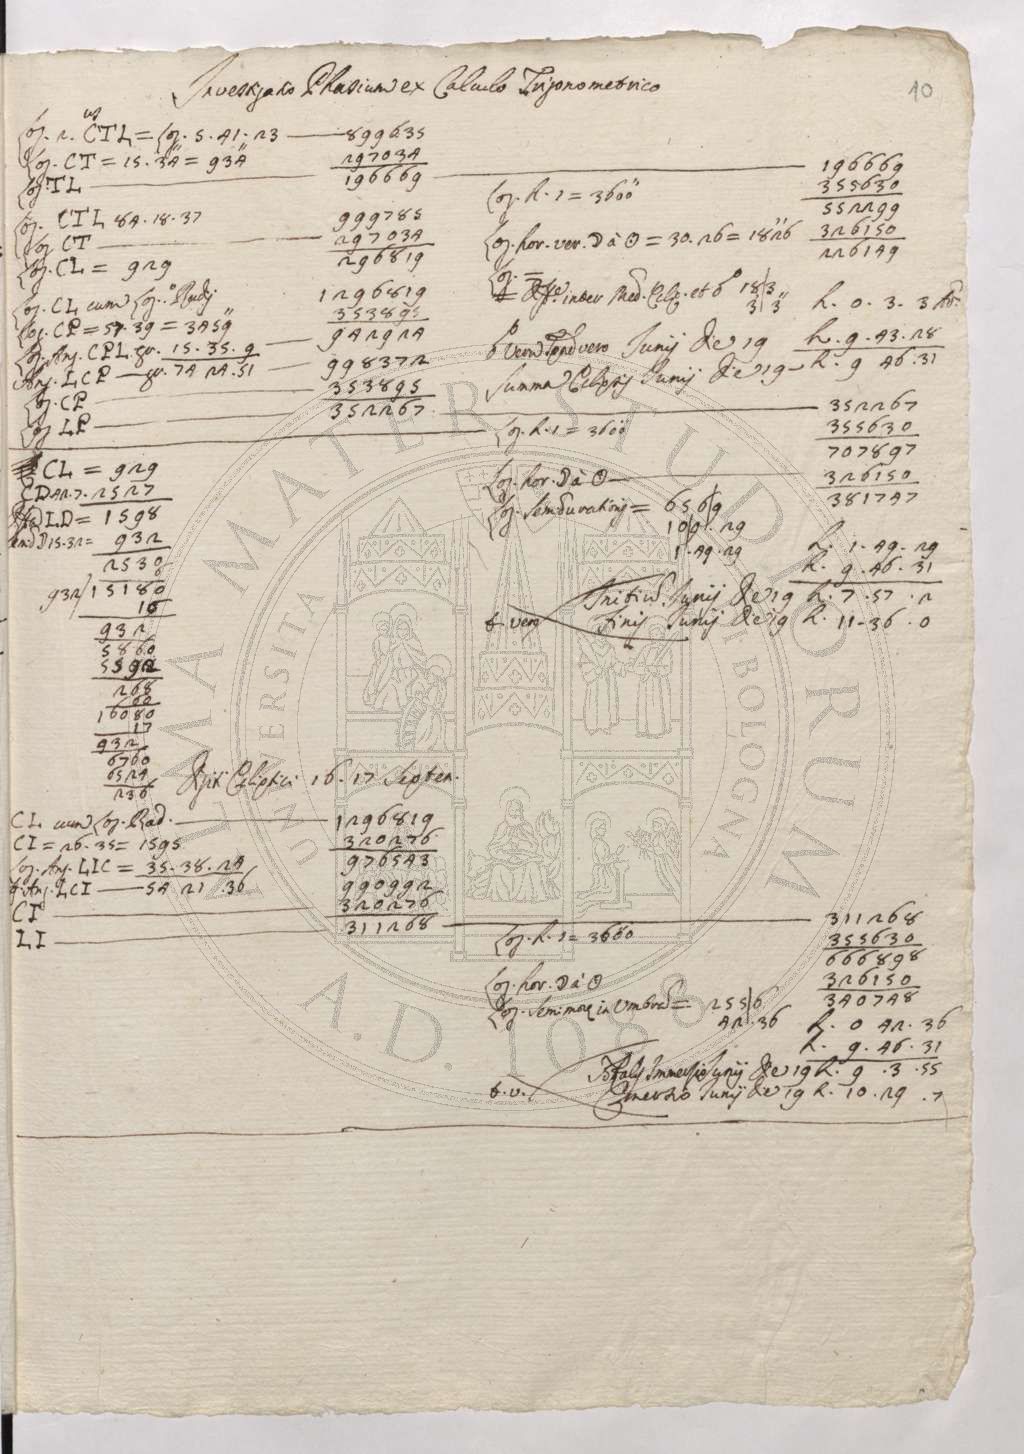 Investigatio Phasium ex Calculo Trigonometrico
10
Log. 2. us CTL = Log. 5. 41. 23 899635
Log. CT = 15. 34" = 934" 297034
Log TL 196669
Log. CTL 84. 18. 37 999785
Log CT 297034
Log. CL = 929 296819
Log. CL cum Log. Radij 1296819
Log. CP = 57. 39 = 3459" 353895
Log. Ang. CPL gr. 15. 35. 9 942924
Ang. LCP gr. 74 24. 51 998372
Log. CP 353895
Log LP 352267
196669
Log. h. 1 = 3600" 355630
552299
Log. hor. ver. D à ☉ = 30. 26 = 1826" 326150
226149
Log. = 18|3
inter Med. Eclip. et 3|3" h. 0. 3. 3
vero Junij die 19 h. 9. 43. 28
Summa Eclipsis Junij die 19 h. 9 46. 31
352267
Log. h. 1 = 3600 355630
707897
Log. hor. D à ☉ 326150
Log. Semidurationis = 656|9 381747
109. 29
1. 49. 29 h. 1. 49. 29
h. 9. 46. 31
Initium Junij die 19 h. 7. 57. 2
t. vero Finis Junij die 19 h. 11. 36. 0
CL = 929
CD 42. 7. 2527
LD = 1598
15. 32 = 932
2530
932/15180
16
932
5860
5592
268
60
16080
17
932
6760
6524
236
Digiti Ecliptici 16. 17 Septen.
CL cum Log. Rad. 1296819
CI = 26. 35 = 1595 320276
Log. Ang. LIC = 35. 38. 24 976543
Ang. LCI 54 21 36 990992
CI 320276
LI 311268
311268
Log. h. 1 = 3600 355630
666898
Log. hor. D à ☉ 326150
Log. Semimorae in Umbra = 255|6 340748
42. 36 h. 0 42. 36
h. 9. 46. 31
Totalis Immersio Junij die 19 h. 9. 3. 55
t. v. Emersio Junij die 19 h. 10. 29. 7
ALMA MATER STUDIORUM
A.D. 1088
UNIVERSITÀ DI BOLOGNA